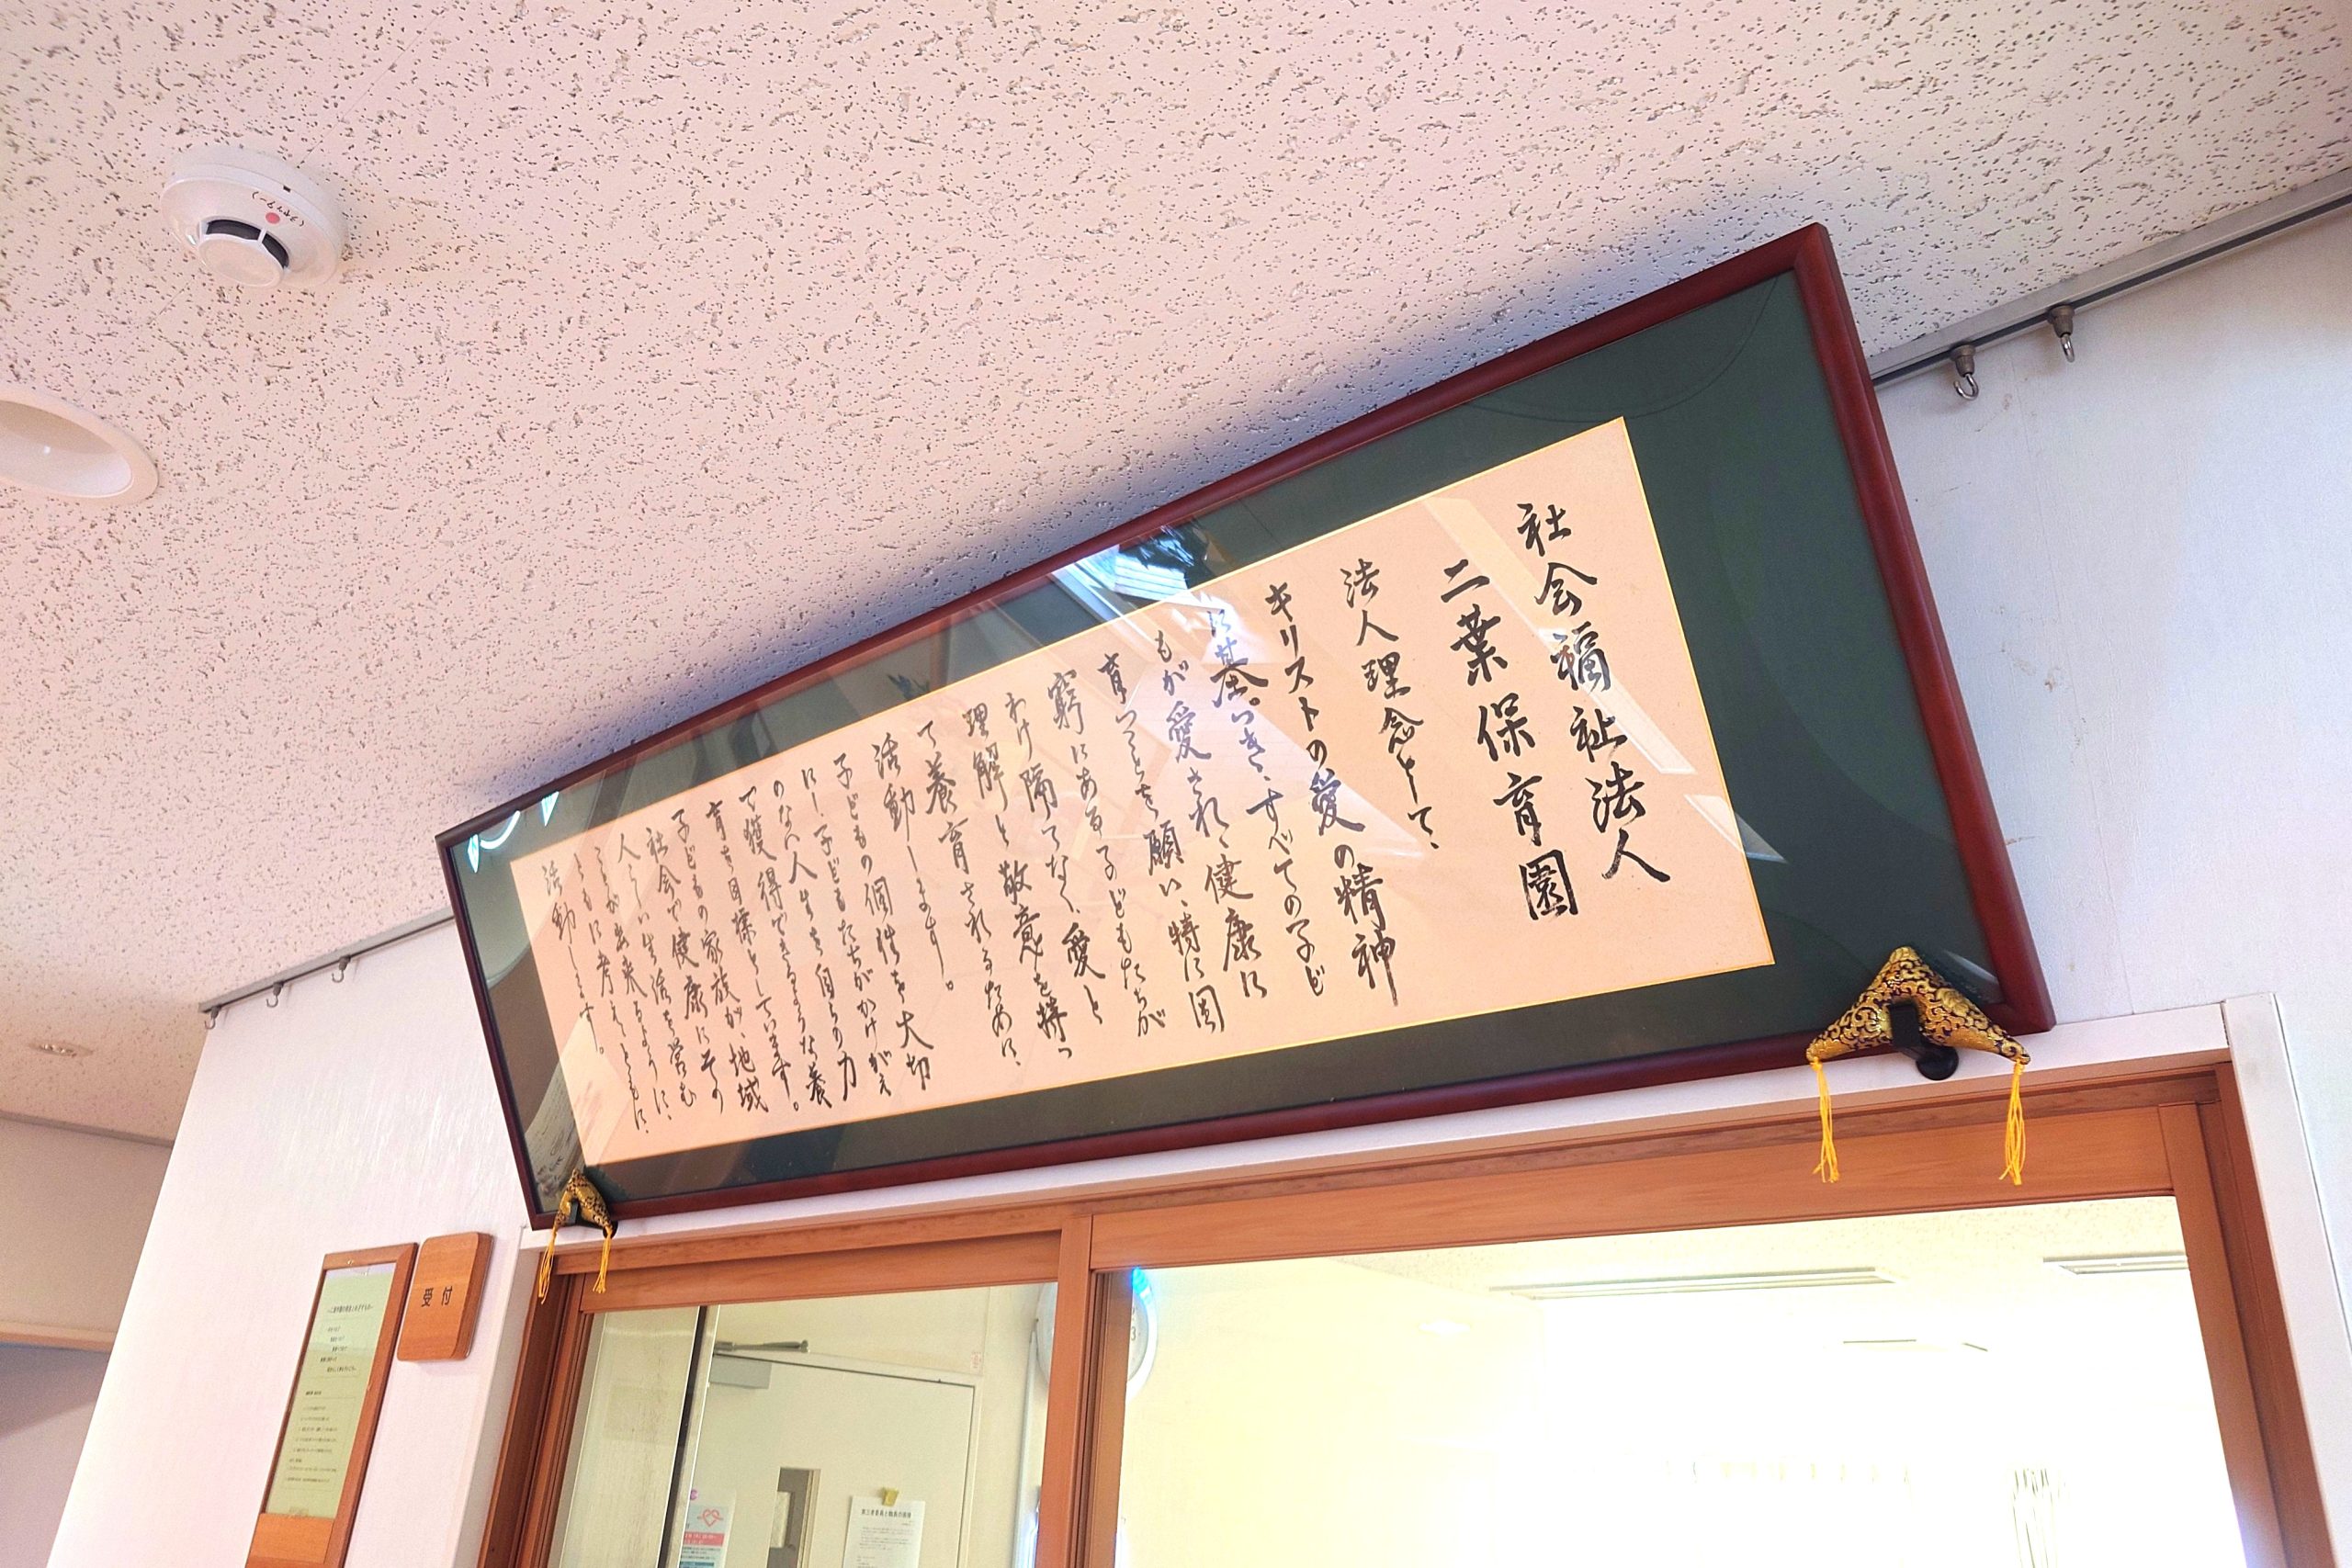 社会福祉法人
二葉保育園
法人理念として、
キリストの愛の精神
に基づき、すべての子ど
もが愛され、健康に
育つことを願い、特に困
窮にある子どもたちが
わけ隔てなく、愛と
理解と敬意を持っ
て養育されるために、
活動します。
子どもの個性を大切
にし子どもたちがかけがえ
のない人生を自らの力
で獲得できるような養
育を目標としています。
子どもの家族が、地域
社会で健康にその
人らしい生活を営む
ことが出来るように、
ともに考え、ともに、
活動します。
受付